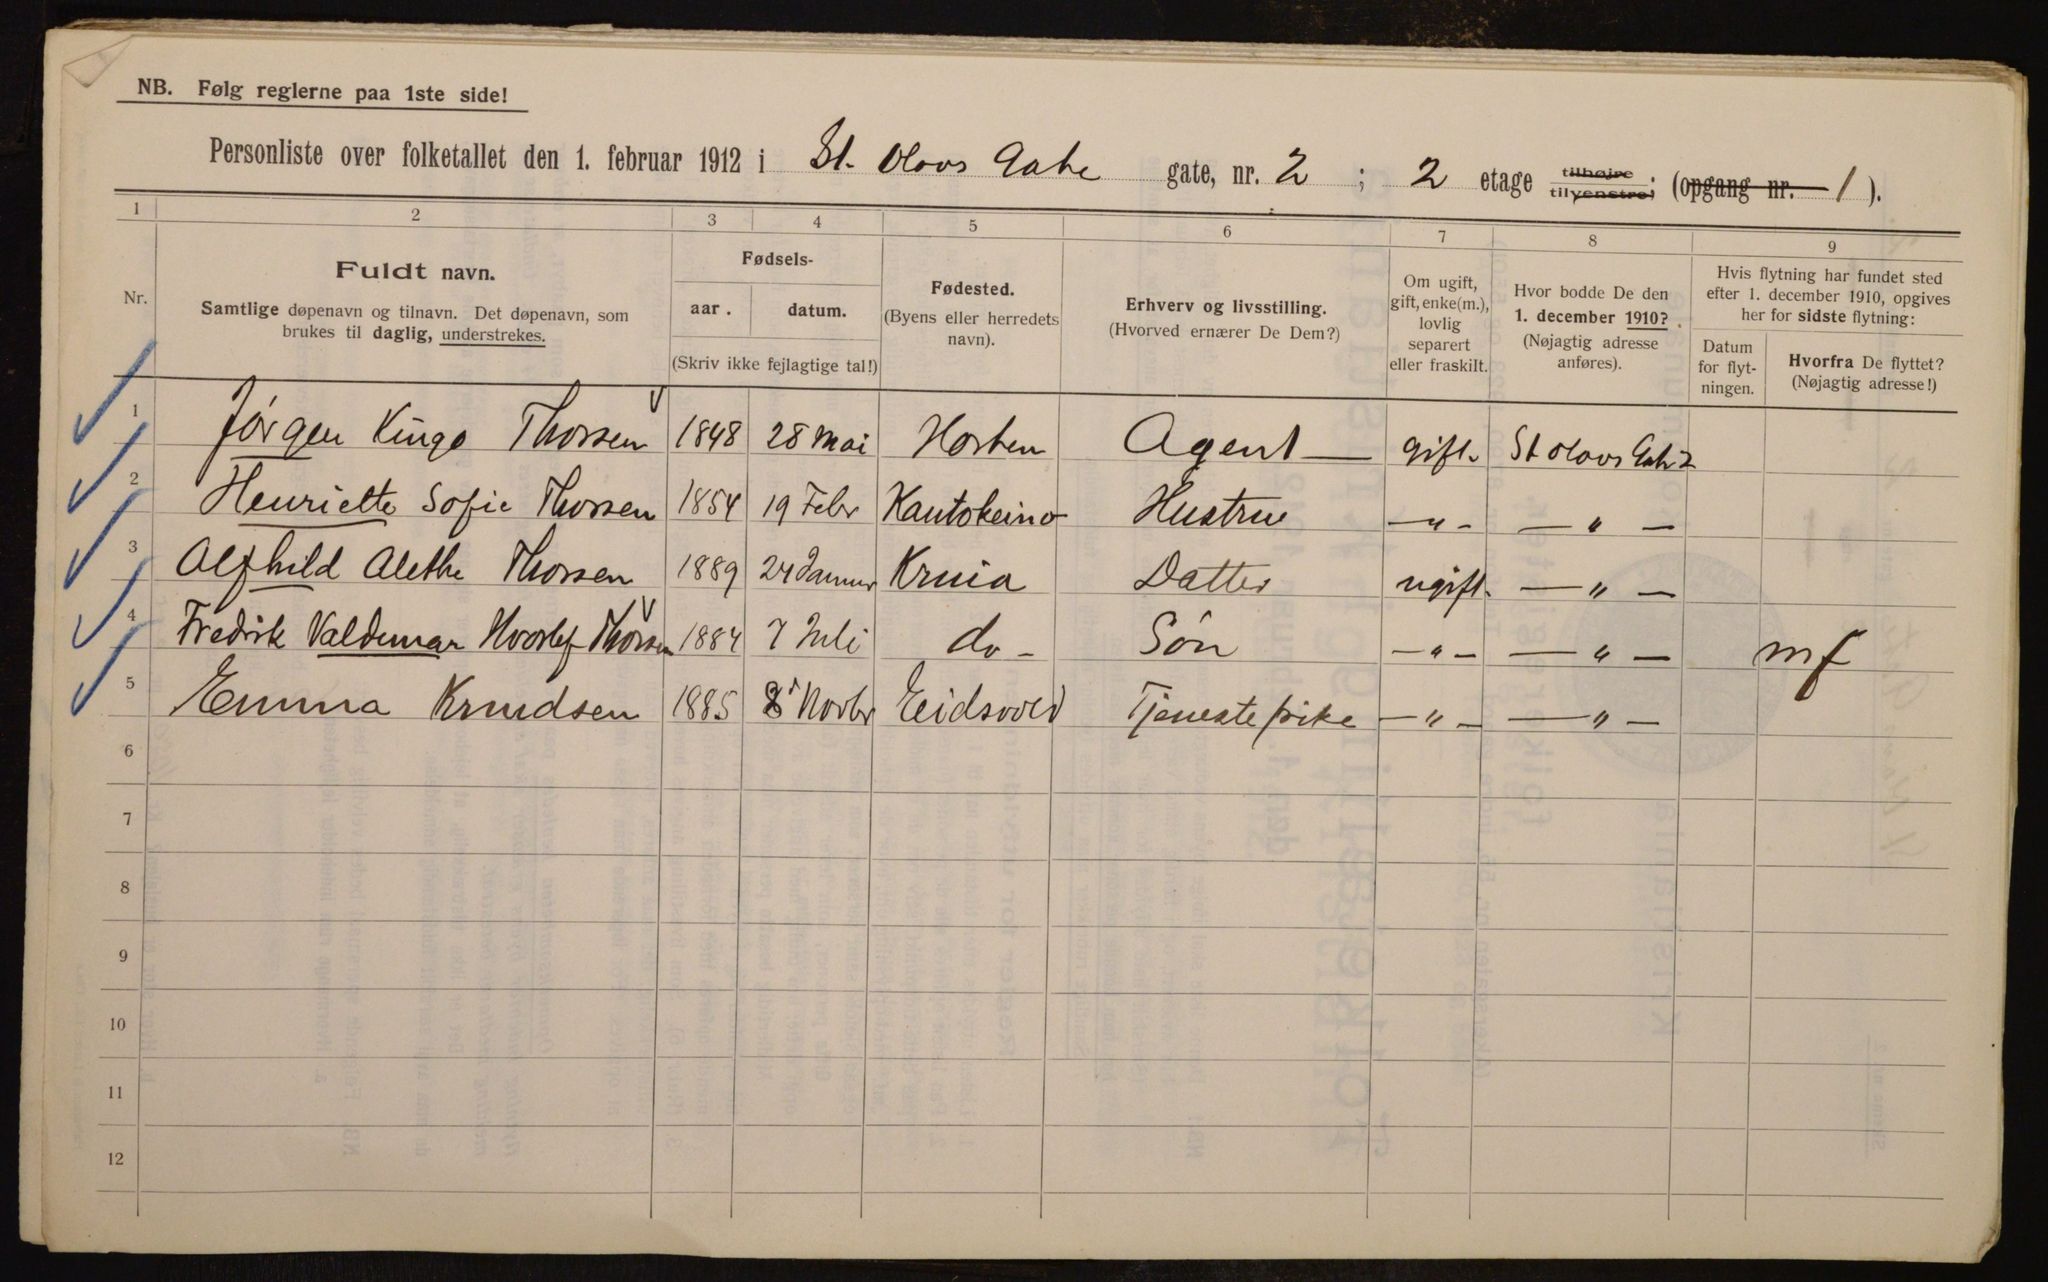 NB. Følg reglerne paa 1ste side!
Personliste over folketallet den 1. februar 1912 i St. Olavs Gate gate, nr. 2 ; 2 etage tilhøjre tilvenstre; (opgang nr. 1 ).
1 2 3 4 5 6 7 8 9
Nr.
Fuldt navn.
Samtlige døpenavn og tilnavn. Det døpenavn, som
brukes til daglig, understrekes.
Fødsels-
aar. datum.
(Skriv ikke fejlagtige tal!)
Fødested.
(Byens eller herredets
navn).
Erhverv og livsstilling.
(Hvorved ernærer De Dem?)
Om ugift,
gift, enke(m.),
lovlig
separert
eller fraskilt.
Hvor bodde De den
1. december 1910?
(Nøjagtig adresse
anføres).
Hvis flytning har fundet sted
efter 1. december 1910, opgives
her for sidste flytning:
Datum
for flyt-
ningen.
Hvorfra De flyttet?
(Nøjagtig adresse!)
1 Jørgen Kingo Thorsen 1848 28 Mai Horten Agent — gift. St Olavs Gate 2
2 Henriette Sofie Thorsen 1854 19 Febr Kautokeino Hustru — " — — " —
3 Alfhild Alethe Thorsen 1889 24 Januar Krnia Datter ugift. — " —
4 Fredrik Valdemar Hvoslef Thorsen 1884 7 Juli do - Søn — " — — " — mf
5 Emma Knudsen 1885 8 Novbr Eidsvold Tjenestepike — " — — " —
6
7
8
9
10
11
12